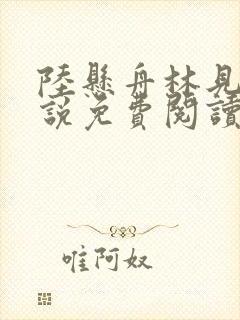 陸懸舟林見
說免費閱讀
唯阿奴